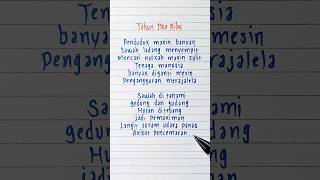 Tahun Dua Ribu
Penduduk makin banyak
Sawah ladang menyempit
Mencari nafkah makin sulit
Tenaga manusia
banyak diganti mesin
Pengangguran merajalela
Sawah ditanami
gedung dan gudang
Hutan ditebang
jadi pemukiman
Langit suram udara panas
Akibat pencemaran
banya
mesin
Pe
ela
ged
dang
Hu
ang
j